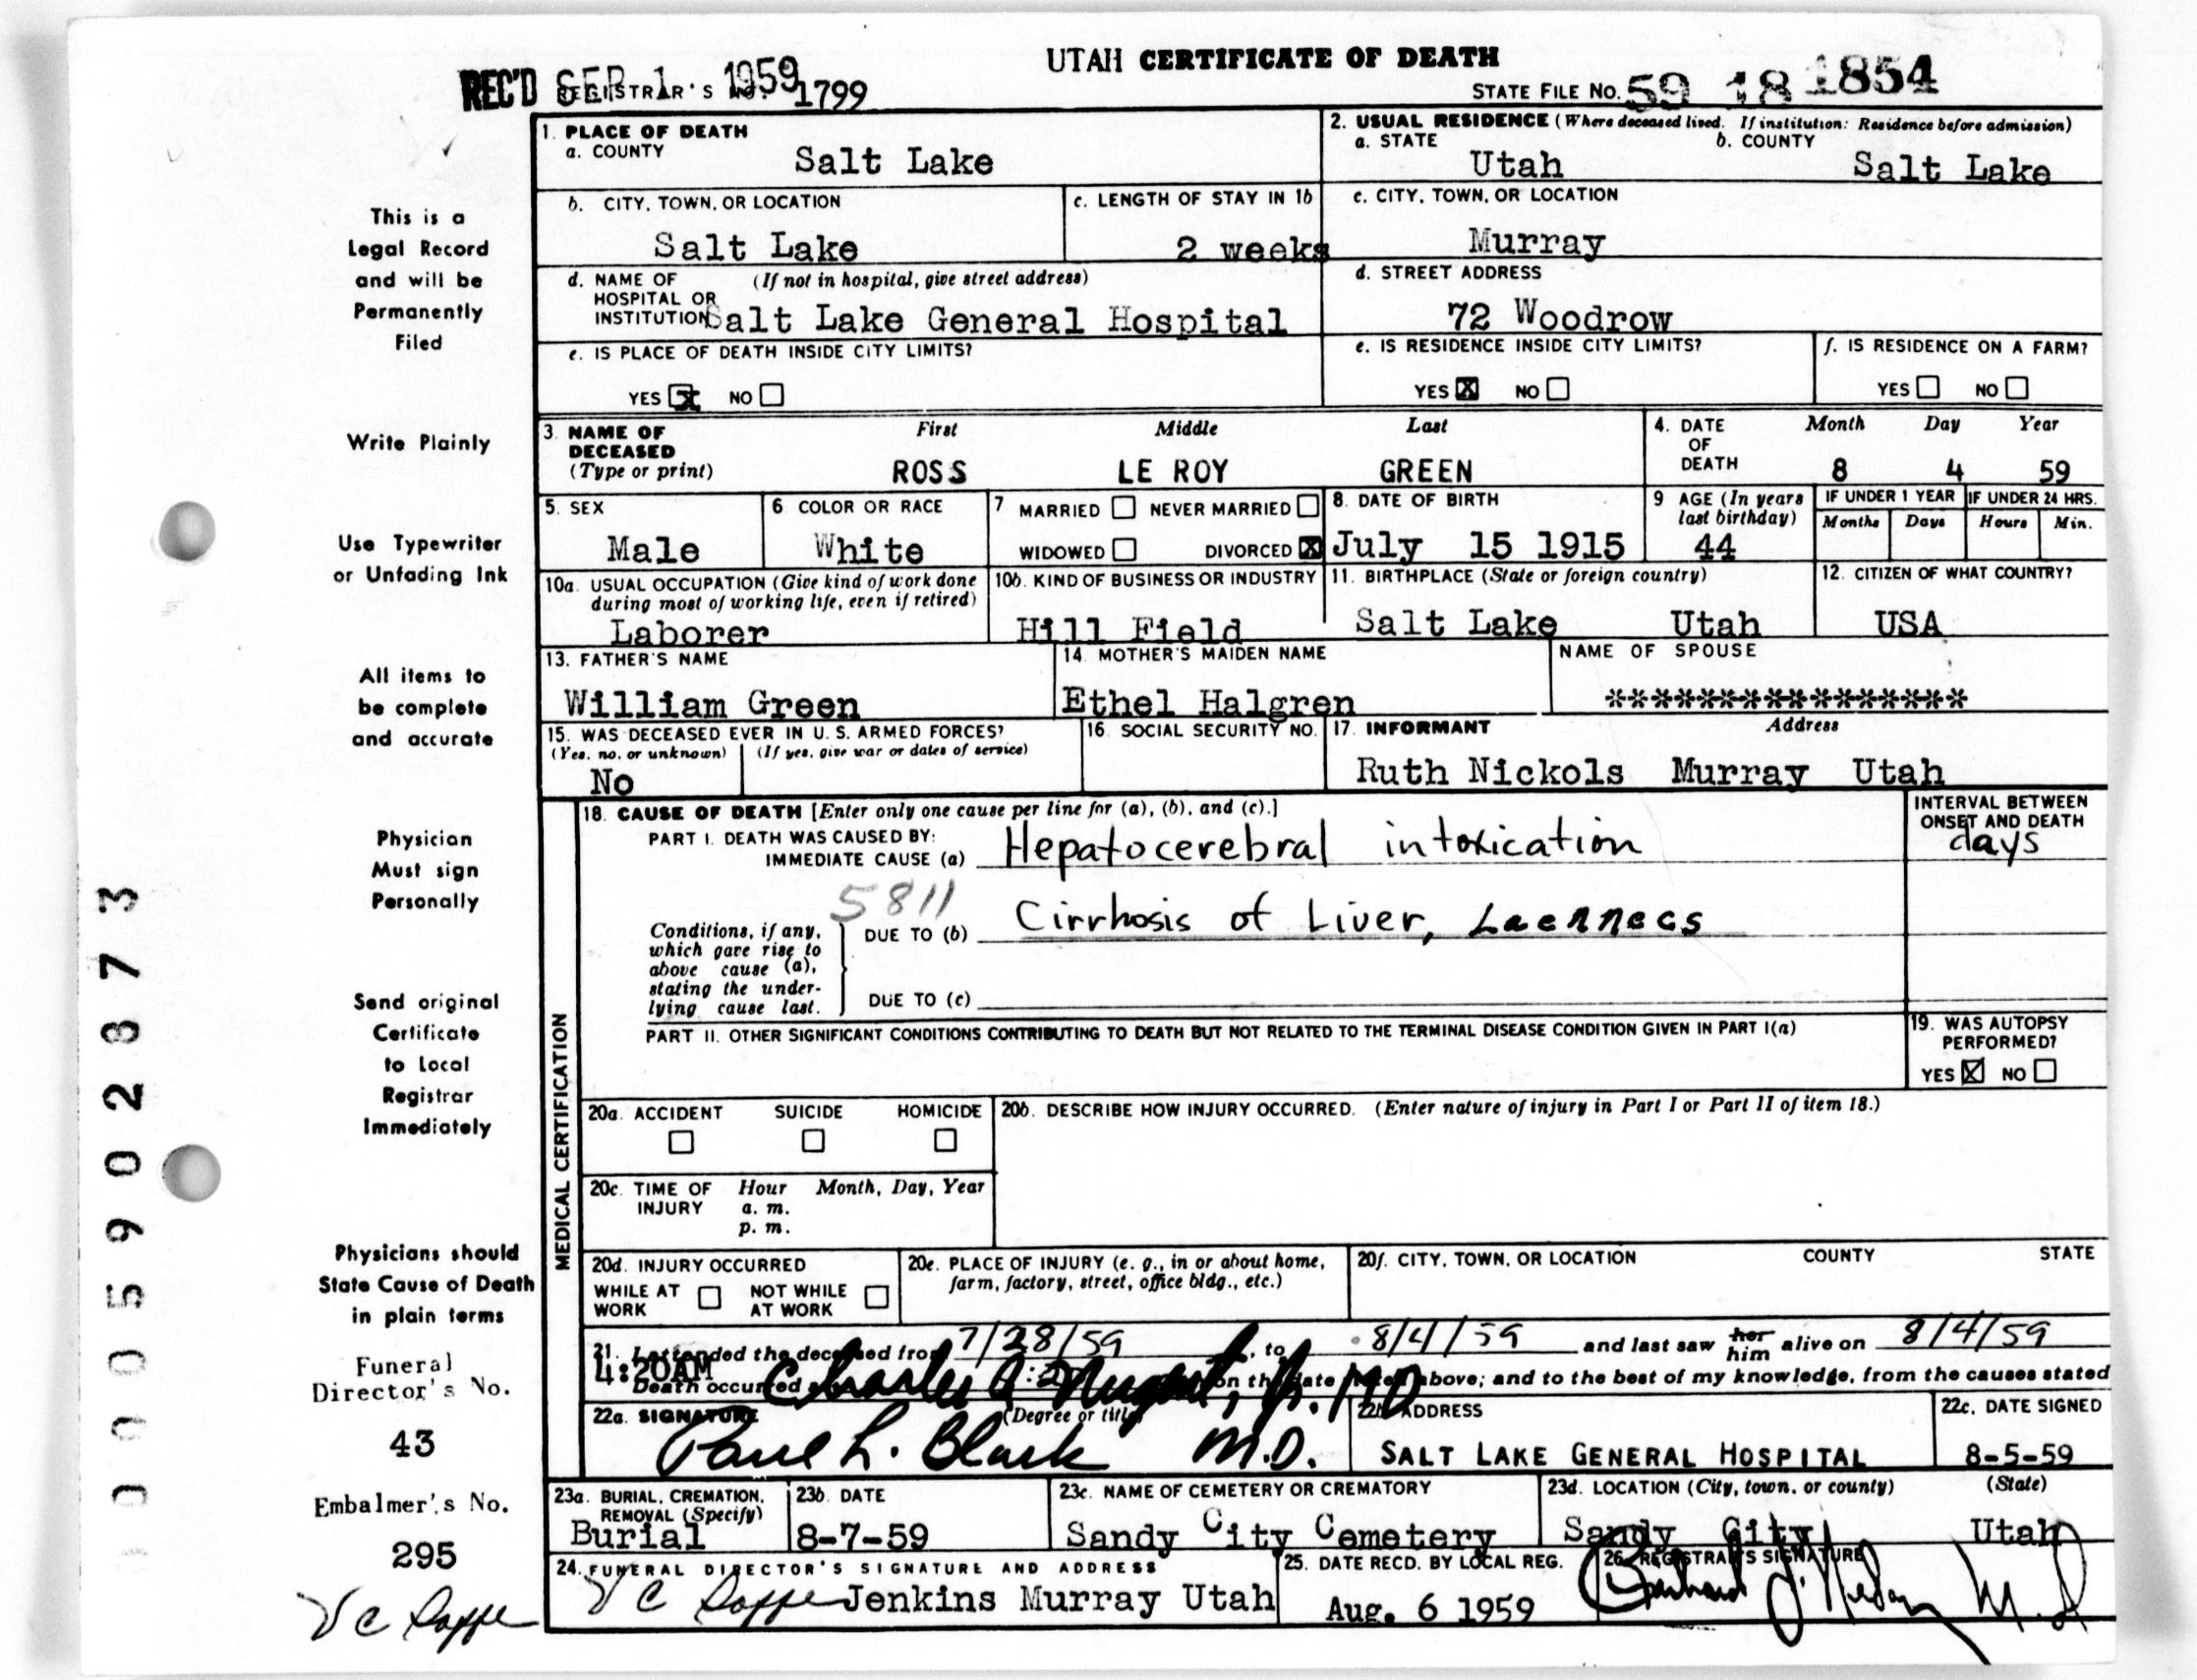 UTAH CERTIFICATE OF DEATH
REC'D SEP 1 1959 REGISTRAR'S NO. 1799
STATE FILE NO. 59 18 1854
1. PLACE OF DEATH
a. COUNTY
Salt Lake
2. USUAL RESIDENCE (Where deceased lived. If institution: Residence before admission)
a. STATE b. COUNTY
Utah Salt Lake
b. CITY, TOWN, OR LOCATION c. LENGTH OF STAY IN 1b c. CITY, TOWN, OR LOCATION
Salt Lake 2 weeks Murray
d. NAME OF HOSPITAL OR INSTITUTION (If not in hospital, give street address)
Salt Lake General Hospital
d. STREET ADDRESS
72 Woodrow
e. IS PLACE OF DEATH INSIDE CITY LIMITS?
YES X NO
e. IS RESIDENCE INSIDE CITY LIMITS?
YES X NO
f. IS RESIDENCE ON A FARM?
YES NO
3. NAME OF DECEASED (Type or print)
First Middle Last
ROSS LE ROY GREEN
4. DATE OF DEATH
Month Day Year
8 4 59
5. SEX
Male
6 COLOR OR RACE
White
7 MARRIED NEVER MARRIED
WIDOWED DIVORCED X
8. DATE OF BIRTH
July 15 1915
9 AGE (In years last birthday)
44
IF UNDER 1 YEAR IF UNDER 24 HRS.
Months Days Hours Min.
10a. USUAL OCCUPATION (Give kind of work done during most of working life, even if retired)
Laborer
10b. KIND OF BUSINESS OR INDUSTRY
Hill Field
11. BIRTHPLACE (State or foreign country)
Salt Lake Utah
12. CITIZEN OF WHAT COUNTRY?
USA
13. FATHER'S NAME
William Green
14. MOTHER'S MAIDEN NAME
Ethel Halgren
NAME OF SPOUSE
****************
15. WAS DECEASED EVER IN U. S. ARMED FORCES?
(Yes, no, or unknown) (If yes, give war or dates of service)
No
16. SOCIAL SECURITY NO.
17. INFORMANT Address
Ruth Nickols Murray Utah
MEDICAL CERTIFICATION
18. CAUSE OF DEATH [Enter only one cause per line for (a), (b), and (c).]
PART I. DEATH WAS CAUSED BY:
IMMEDIATE CAUSE (a) Hepatocerebral intoxication
INTERVAL BETWEEN ONSET AND DEATH
days
5811
Conditions, if any, which gave rise to above cause (a), stating the underlying cause last.
DUE TO (b) Cirrhosis of Liver, Laennecs
DUE TO (c)
PART II. OTHER SIGNIFICANT CONDITIONS CONTRIBUTING TO DEATH BUT NOT RELATED TO THE TERMINAL DISEASE CONDITION GIVEN IN PART I(a)
19. WAS AUTOPSY PERFORMED?
YES X NO
20a. ACCIDENT SUICIDE HOMICIDE
20b. DESCRIBE HOW INJURY OCCURRED. (Enter nature of injury in Part I or Part II of item 18.)
20c. TIME OF INJURY Hour Month, Day, Year
a. m.
p. m.
20d. INJURY OCCURRED
WHILE AT WORK NOT WHILE AT WORK
20e. PLACE OF INJURY (e. g., in or about home, farm, factory, street, office bldg., etc.)
20f. CITY, TOWN, OR LOCATION COUNTY STATE
21. I attended the deceased from 7/28/59, to 8/4/59 and last saw her him alive on 8/4/59
4:20AM
Death occurred on the date above; and to the best of my knowledge, from the causes stated
Charles A Nugent, Jr. MD
22a. SIGNATURE (Degree or title)
Paul L. Black M.D.
22b. ADDRESS
SALT LAKE GENERAL HOSPITAL
22c. DATE SIGNED
8-5-59
23a. BURIAL, CREMATION, REMOVAL (Specify)
Burial
23b. DATE
8-7-59
23c. NAME OF CEMETERY OR CREMATORY
Sandy City Cemetery
23d. LOCATION (City, town, or county) (State)
Sandy City Utah
24. FUNERAL DIRECTOR'S SIGNATURE AND ADDRESS
Jenkins Murray Utah
25. DATE RECD. BY LOCAL REG.
Aug. 6 1959
26. REGISTRAR'S SIGNATURE
This is a
Legal Record
and will be
Permanently
Filed
Write Plainly
Use Typewriter
or Unfading Ink
All items to
be complete
and accurate
Physician
Must sign
Personally
Send original
Certificate
to Local
Registrar
Immediately
Physicians should
State Cause of Death
in plain terms
Funeral
Director's No.
43
Embalmer's No.
295